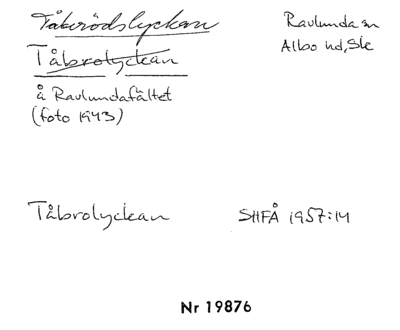 Tåbrödslyckan
Ravlunda sn
Albo hd, Sk
Tåbrolyckan
å Ravlundafältet
(foto 1943)
Tåbrolyckan SHFÅ 1957:14
Nr 19876